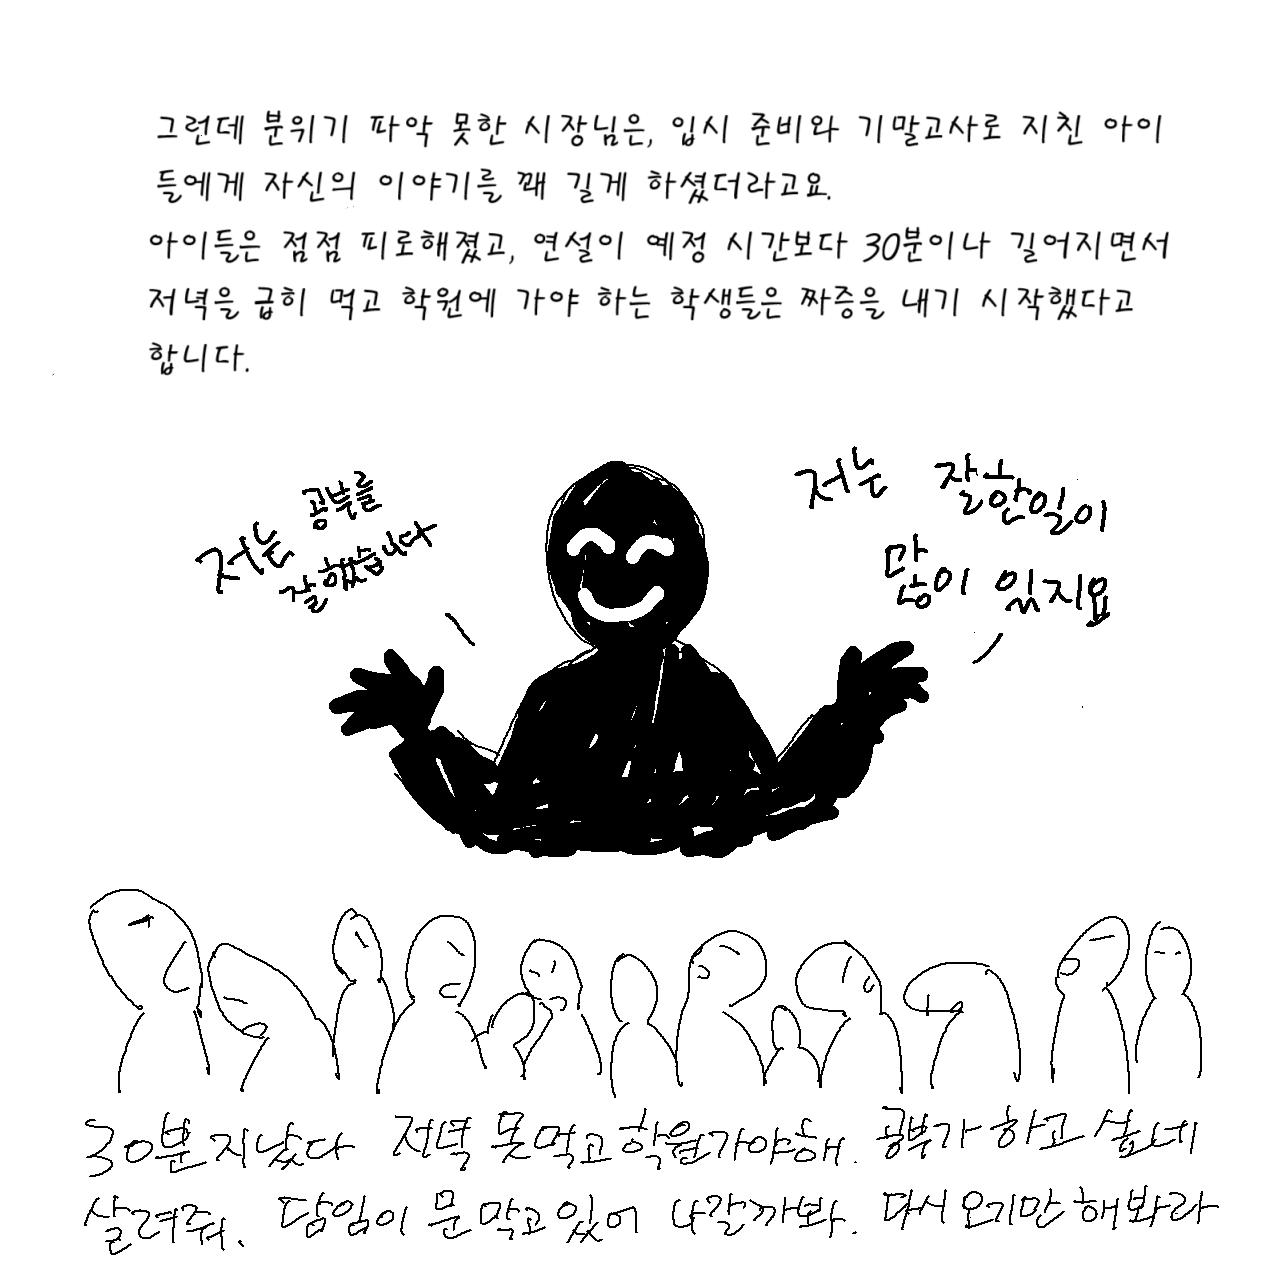 그런데 분위기 파악 못한 시장님은, 입시 준비와 기말고사로 지친 아이
들에게 자신의 이야기를 꽤 길게 하셨더라고요.
아이들은 점점 피로해졌고, 연설이 예정 시간보다 30분이나 길어지면서
저녁을 급히 먹고 학원에 가야 하는 학생들은 짜증을 내기 시작했다고
합니다.
저는 공부를
잘했습니다
저는 잘한일이
많이 있지요
30분 지났다 저녁 못먹고 학원가야해. 공부가 하고 싶네
살려줘. 담임이 문 막고 있어 나갈까봐. 다시 오기만 해봐라